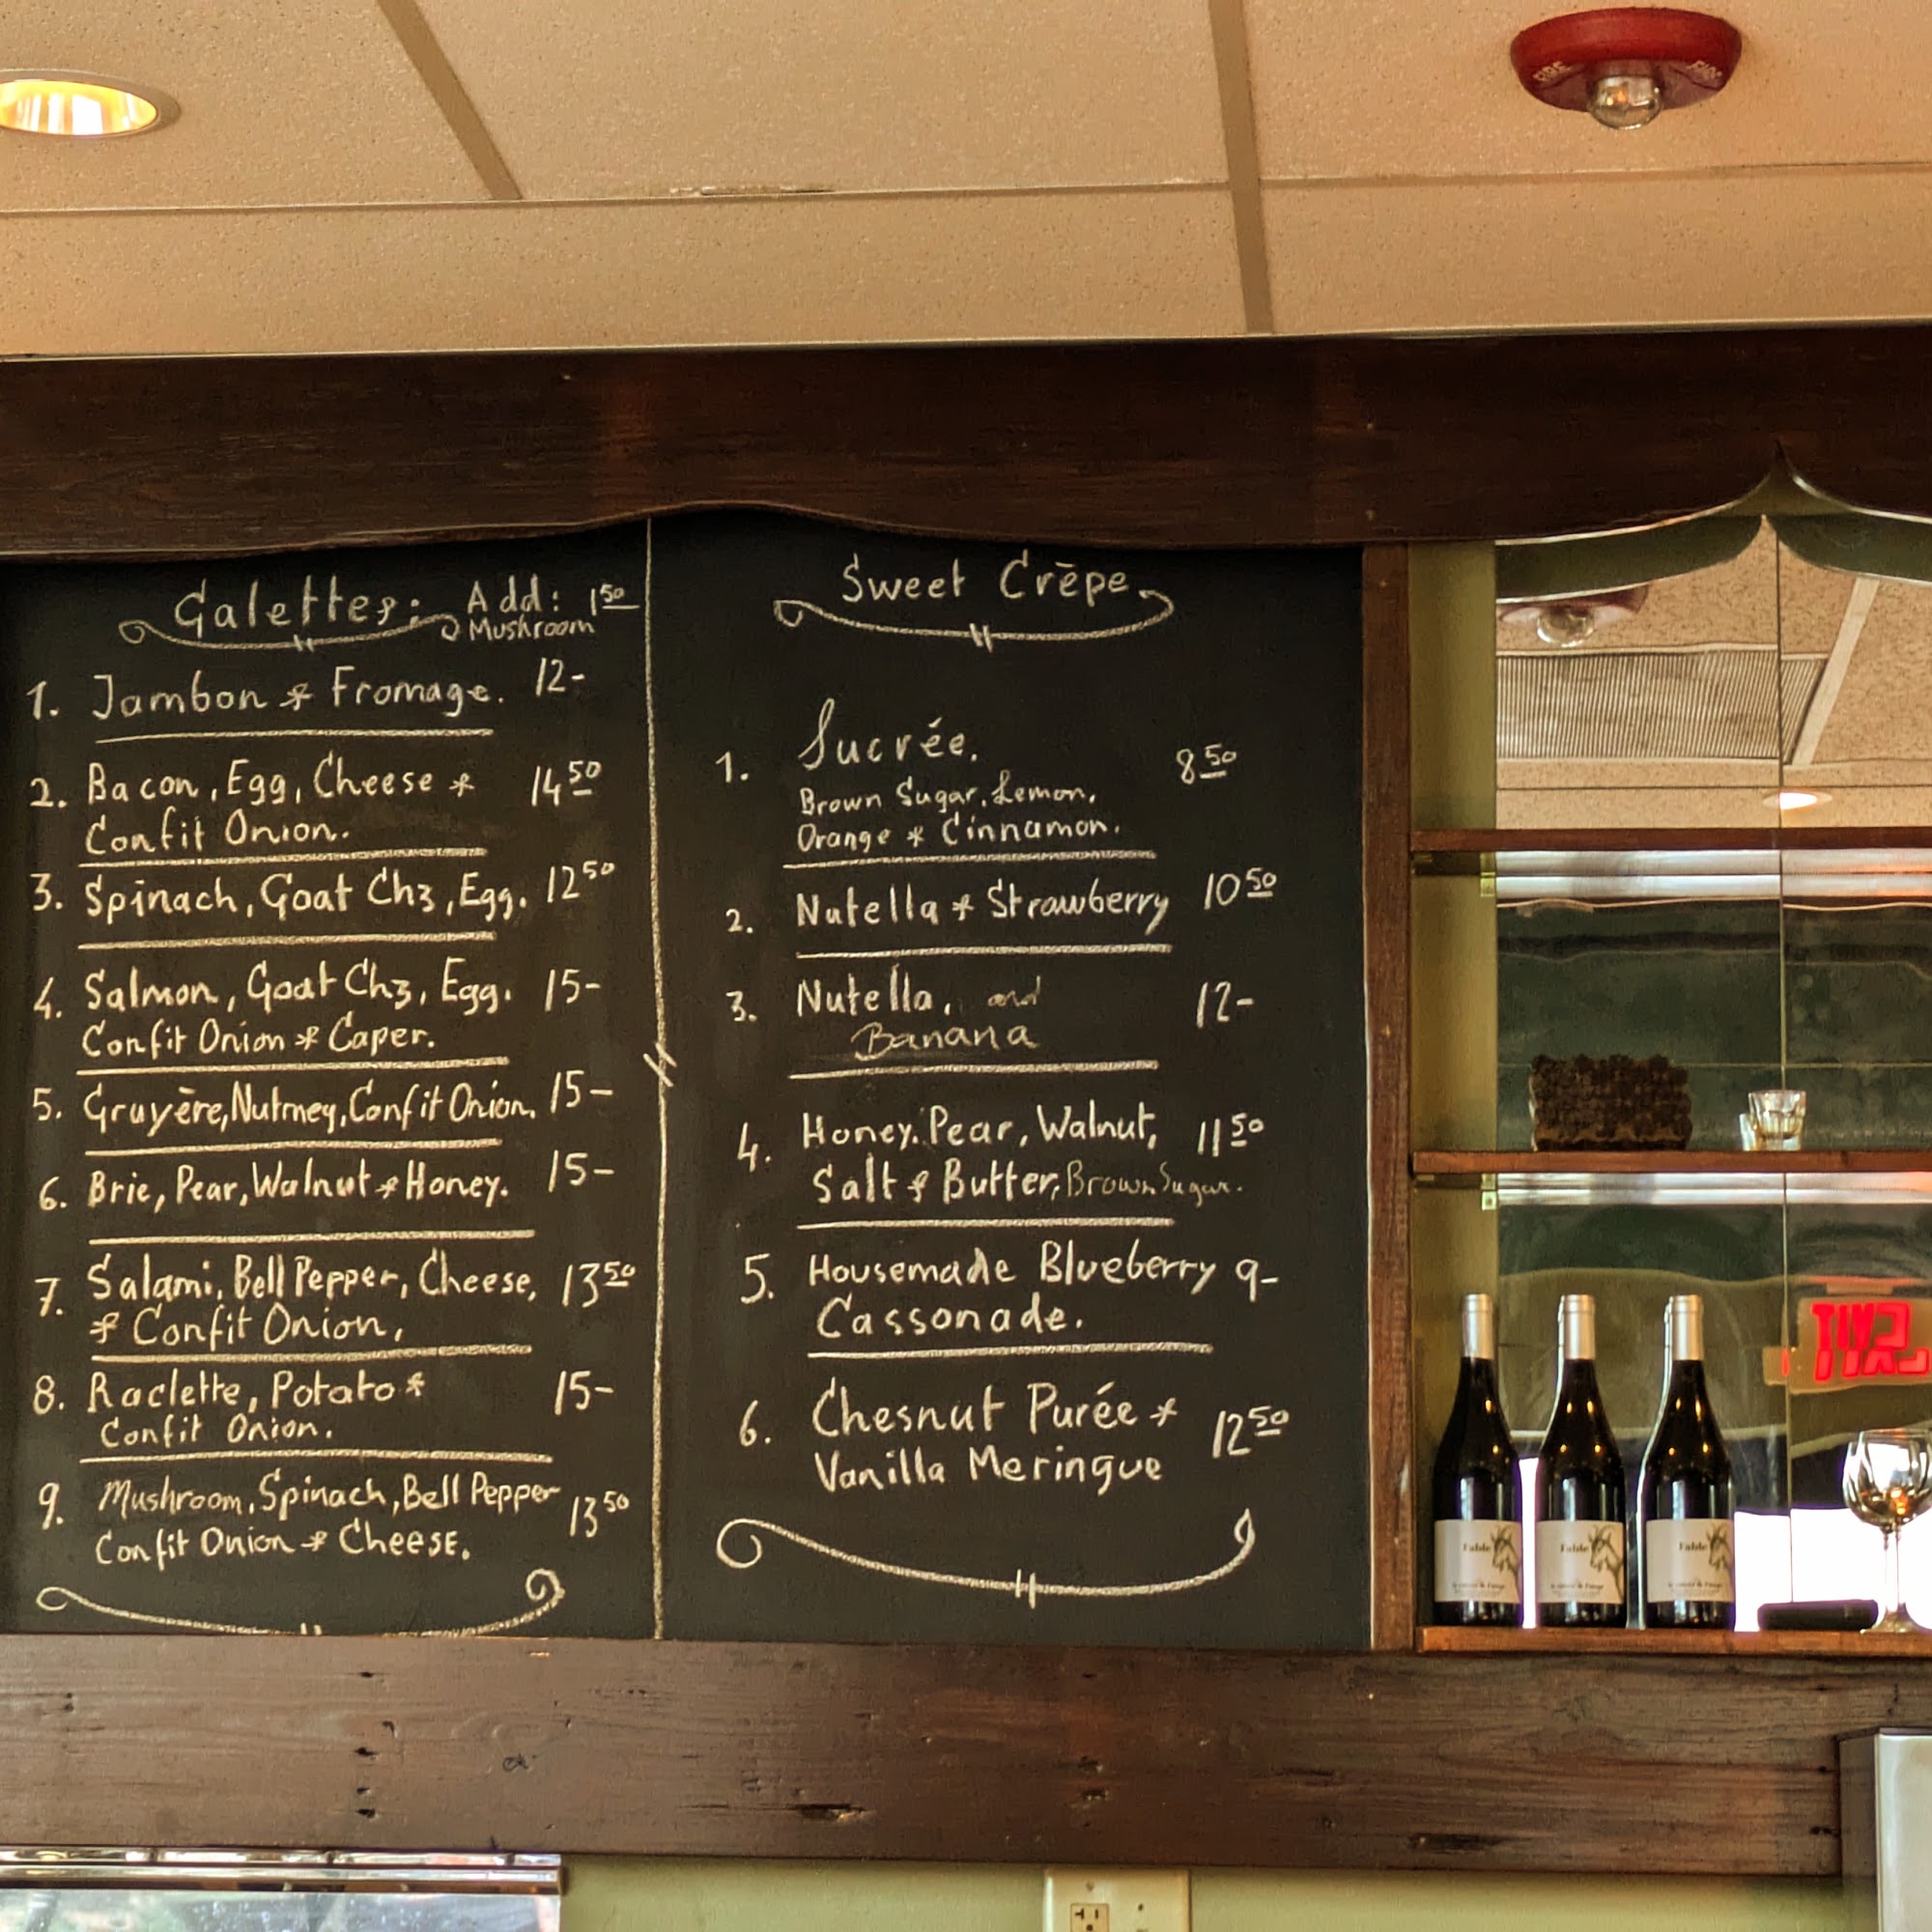 FIRE FIRE
Galettes: Add: 1 50
Mushroom
1. Jambon & Fromage. 12-
2. Bacon, Egg, Cheese & 14 50
Confit Onion.
3. Spinach, Goat Chz, Egg. 12 50
4. Salmon, Goat Chz, Egg. 15-
Confit Onion & Caper.
5. Gruyère, Nutmey, Confit Onion. 15-
6. Brie, Pear, Walnut & Honey. 15-
7. Salami, Bell Pepper, Cheese, 13 50
& Confit Onion,
8. Raclette, Potato & 15-
Confit Onion.
9. Mushroom, Spinach, Bell Pepper 13 50
Confit Onion & Cheese.
Sweet Crêpe
1. Sucrée. 8 50
Brown Sugar, Lemon,
Orange & Cinnamon.
2. Nutella & Strawberry 10 50
3. Nutella, and 12-
Banana
4. Honey, Pear, Walnut, 11 50
Salt & Butter, Brown Sugar.
5. Housemade Blueberry 9-
Cassonade.
6. Chesnut Purée & 12 50
Vanilla Meringue
Fable
Fable
Fable